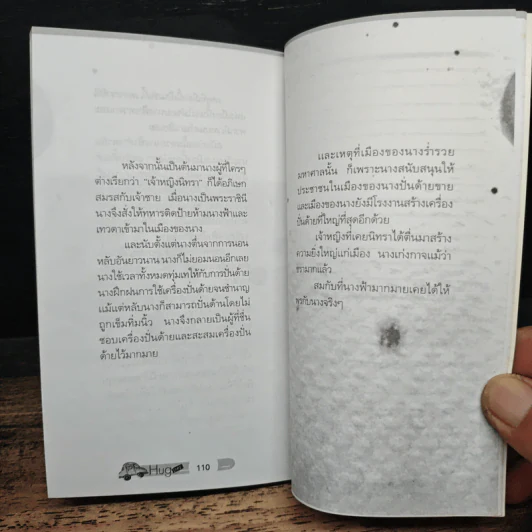 หลังจากนั้นเป็นต้นมานางผู้ที่ใครๆ
ต่างเรียกว่า "เจ้าหญิงนิทรา" ก็ได้อภิเษก
สมรสกับเจ้าชาย เมื่อนางเป็นพระราชินี
นางจึงสั่งให้ทหารติดป้ายห้ามนางฟ้าและ
เทวดาเข้ามาในเมืองของนาง
และนับตั้งแต่นางตื่นจากการนอน
หลับอันยาวนาน นางก็ไม่ยอมนอนอีกเลย
นางใช้เวลาทั้งหมดทุ่มเทให้กับการปั่นด้าย
นางฝึกฝนการใช้เครื่องปั่นด้ายจนชำนาญ
แม้แต่หลับนางก็สามารถปั่นด้านโดยไม่
ถูกเข็มทิ่มนิ้ว นางจึงกลายเป็นผู้ที่ชื่น
ชอบเครื่องปั่นด้ายและสะสมเครื่องปั่น
ด้ายไว้มากมาย
Hug
110
และเหตุที่เมืองของนางร่ำรวย
มหาศาลนั้น ก็เพราะนางสนับสนุนให้
ประชาชนในเมืองของนางปั่นด้ายขาย
และเมืองของนางยังมีโรงงานสร้างเครื่อง
ปั่นด้ายที่ใหญ่ที่สุดอีกด้วย
เจ้าหญิงที่เคยนิทราได้ตื่นมาสร้าง
ความยิ่งใหญ่แก่เมือง นางเก่งกาจแม้ว่า
สมกับที่นางฟ้ามากมายเคยได้ให้
พรกับนางจริงๆ